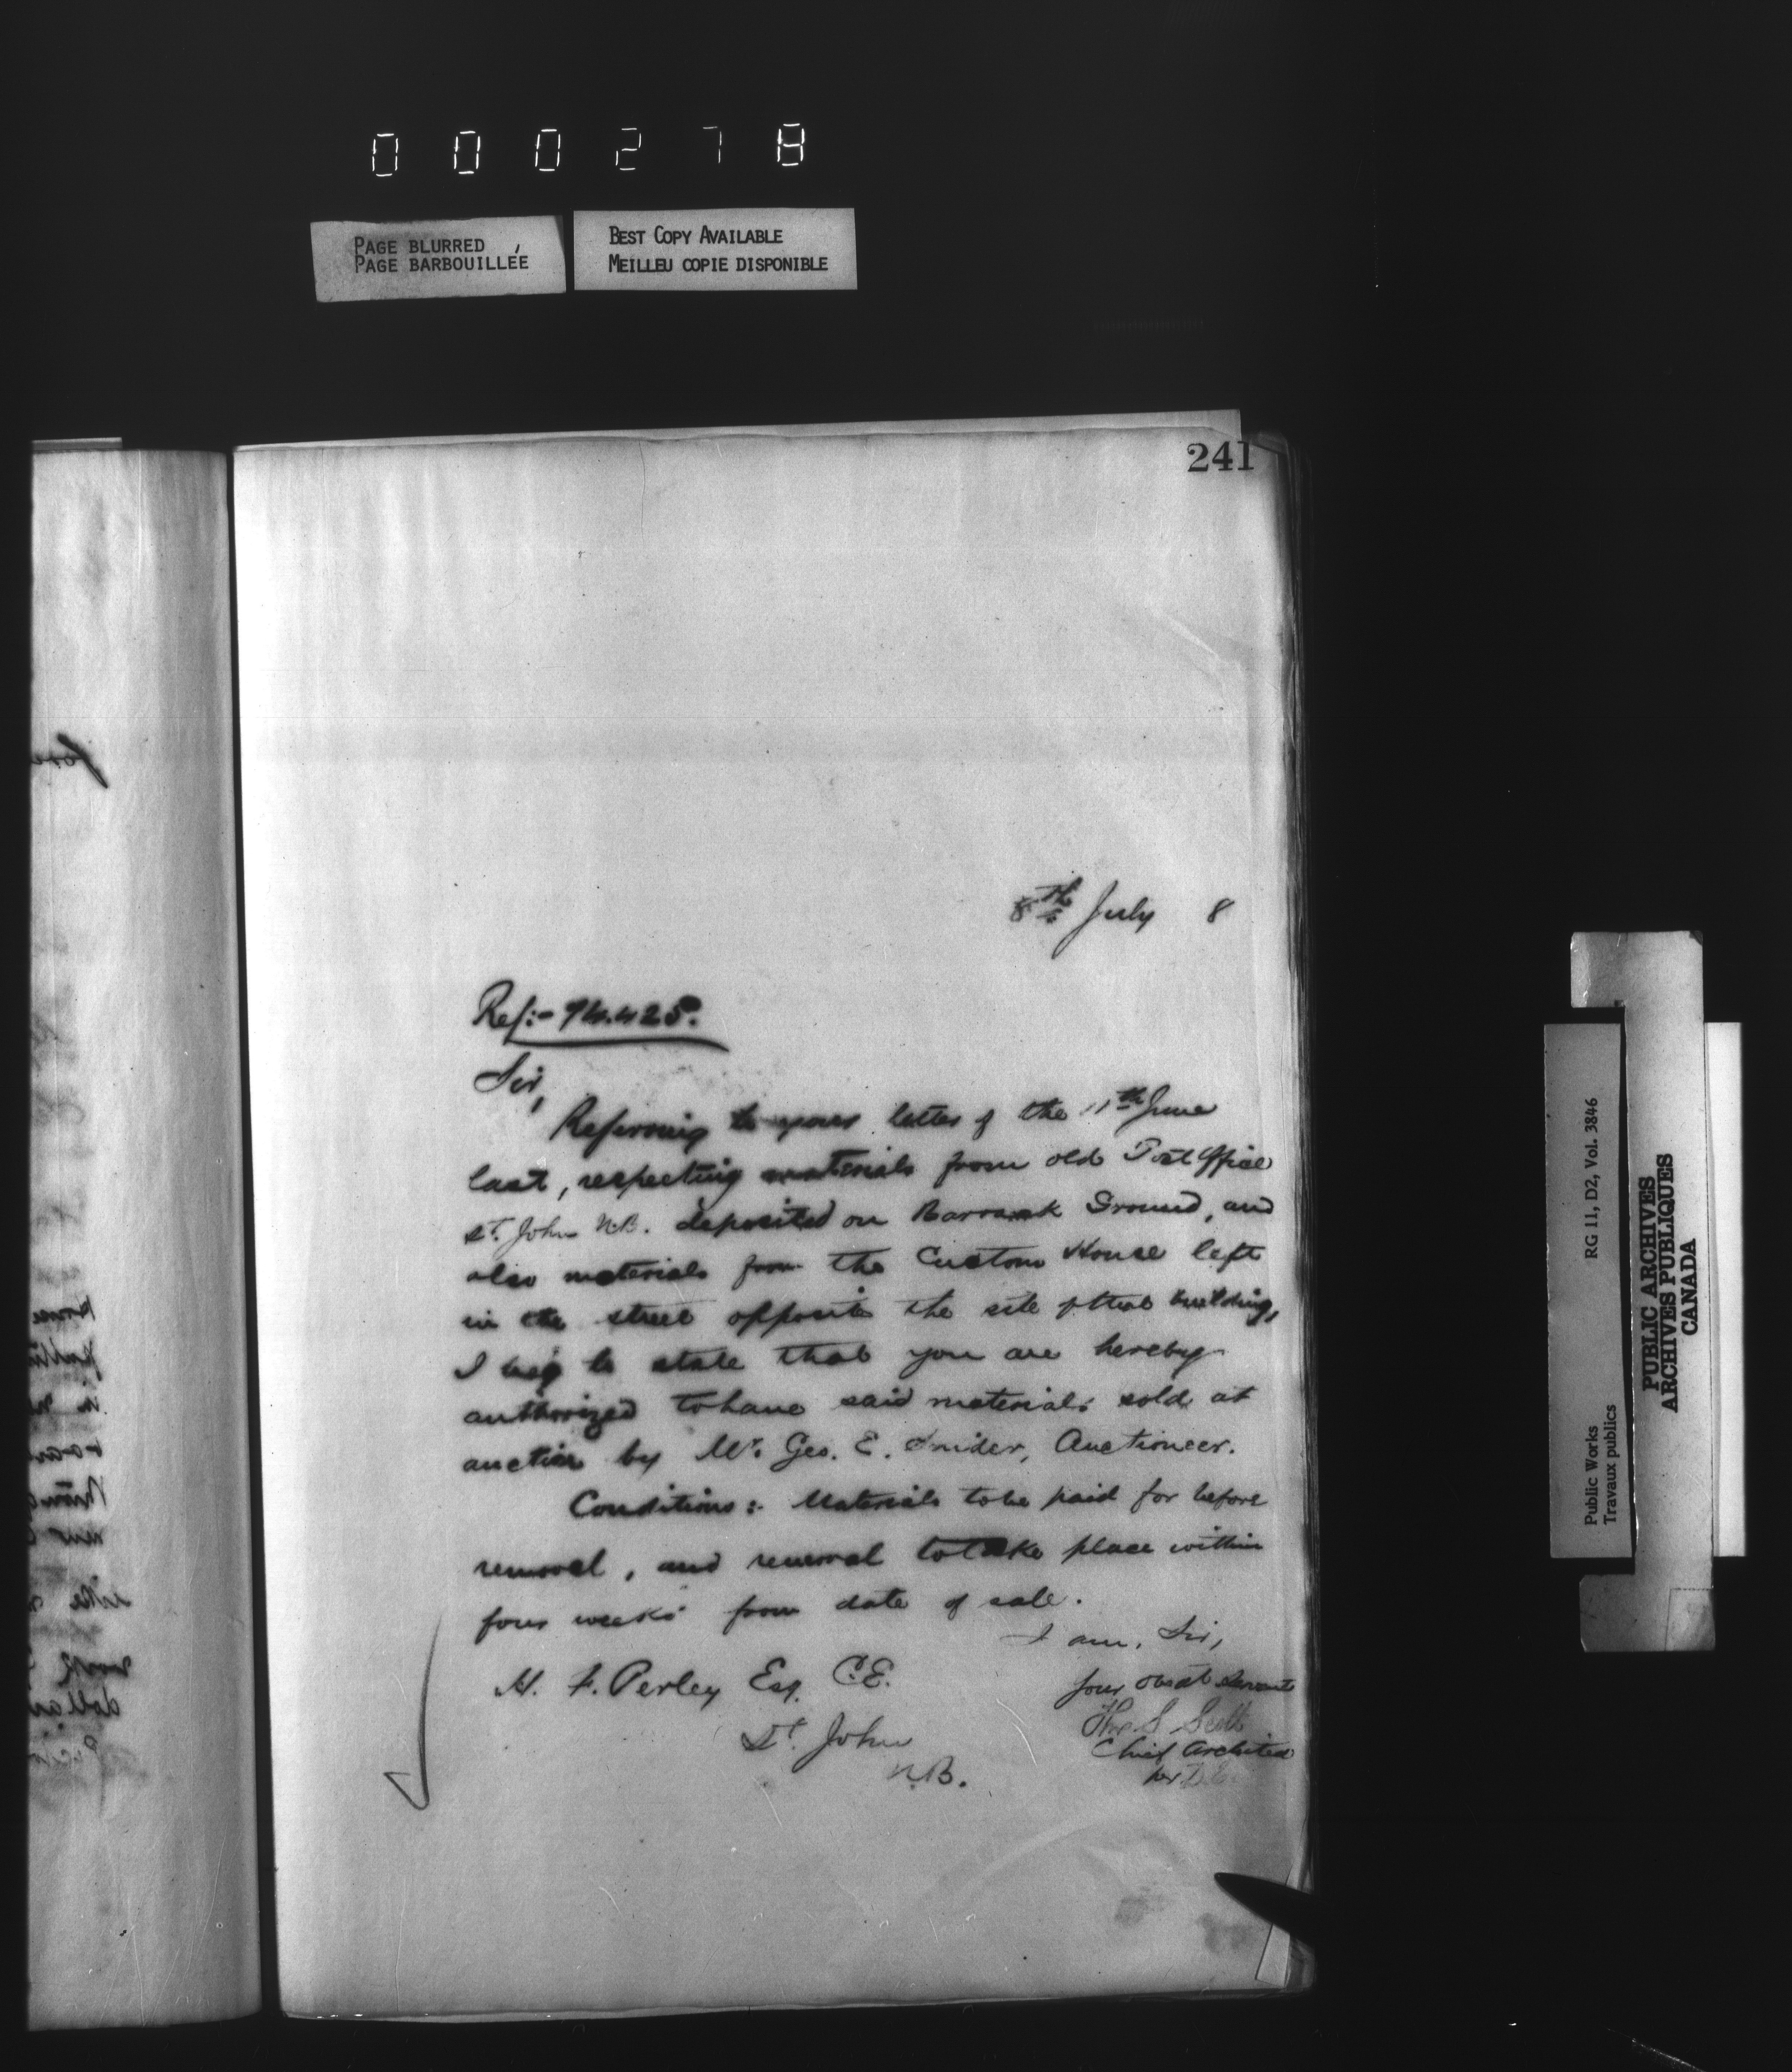 000278
PAGE BLURRED
PAGE BARBOUILLÉE
BEST COPY AVAILABLE
MEILLEU COPIE DISPONIBLE
241
8th July 8
Ref:-
Sir,
Referring to your letter of the 11th June
last, respecting materials from old Post Office
St. John N.B. deposited on Barrack Ground, and
also materials from the Custom House left
in the street opposite the site of that building,
I beg to state that you are hereby
authorized to have said materials sold at
auction by Mr. Geo. E. Snider, Auctioneer.
Conditions:- Materials to be paid for before
removal, and removal to take place within
four weeks from date of sale.
I am, Sir,
Your obedt Servant
Thos S. Scott
Chief Architect
per
H. F. Perley Esq. C.E.
St. John
N.B.
Public Works
Travaux publics
RG 11, D2, Vol. 3846
PUBLIC ARCHIVES
ARCHIVES PUBLIQUES
CANADA